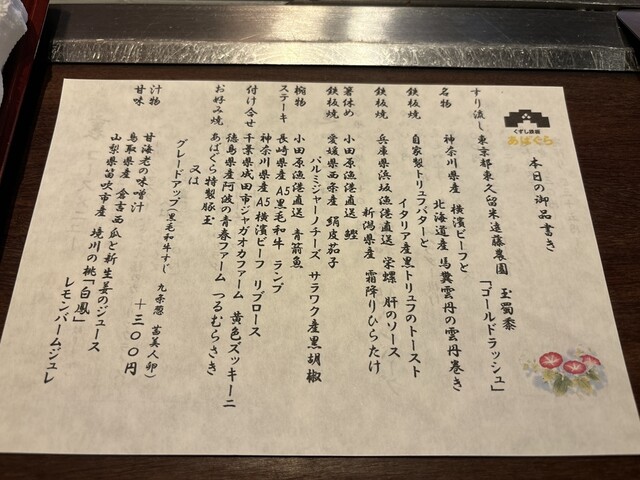 くずし鉄板
あばぐら
本日の御品書き
すり流し 東京都東久留米遠藤農園 玉蜀黍
「ゴールドラッシュ」
名物 神奈川県産 横濱ビーフと
北海道産 馬糞雲丹の雲丹巻き
鉄板焼 自家製トリュフバターと
イタリア産黒トリュフのトースト
鉄板焼 兵庫県浜坂漁港直送 栄螺 肝のソース
新潟県産 霜降りひらたけ
箸休め 小田原漁港直送 鰹
鉄板焼 愛媛県西条産 絹皮茄子
パルミジャーノチーズ サラワク産黒胡椒
椀物 小田原漁港直送 青箭魚
ステーキ 長崎県産 A5黒毛和牛 ランプ
神奈川県産 A5 横濱ビーフ リブロース
付け合せ 千葉県成田市ジャガオカファーム 黄色ズッキーニ
徳島県産阿波の青春ファーム つるむらさき
お好み焼 あばぐら特製豚玉
又は
グレードアップ(黒毛和牛すじ 九条葱 苗美人卵)
+1300円
汁物 甘海老の味噌汁
甘味 鳥取県産 倉吉西瓜と新生姜のジュース
山梨県笛吹市産 境川の桃「白鳳」
レモンバームジュレ